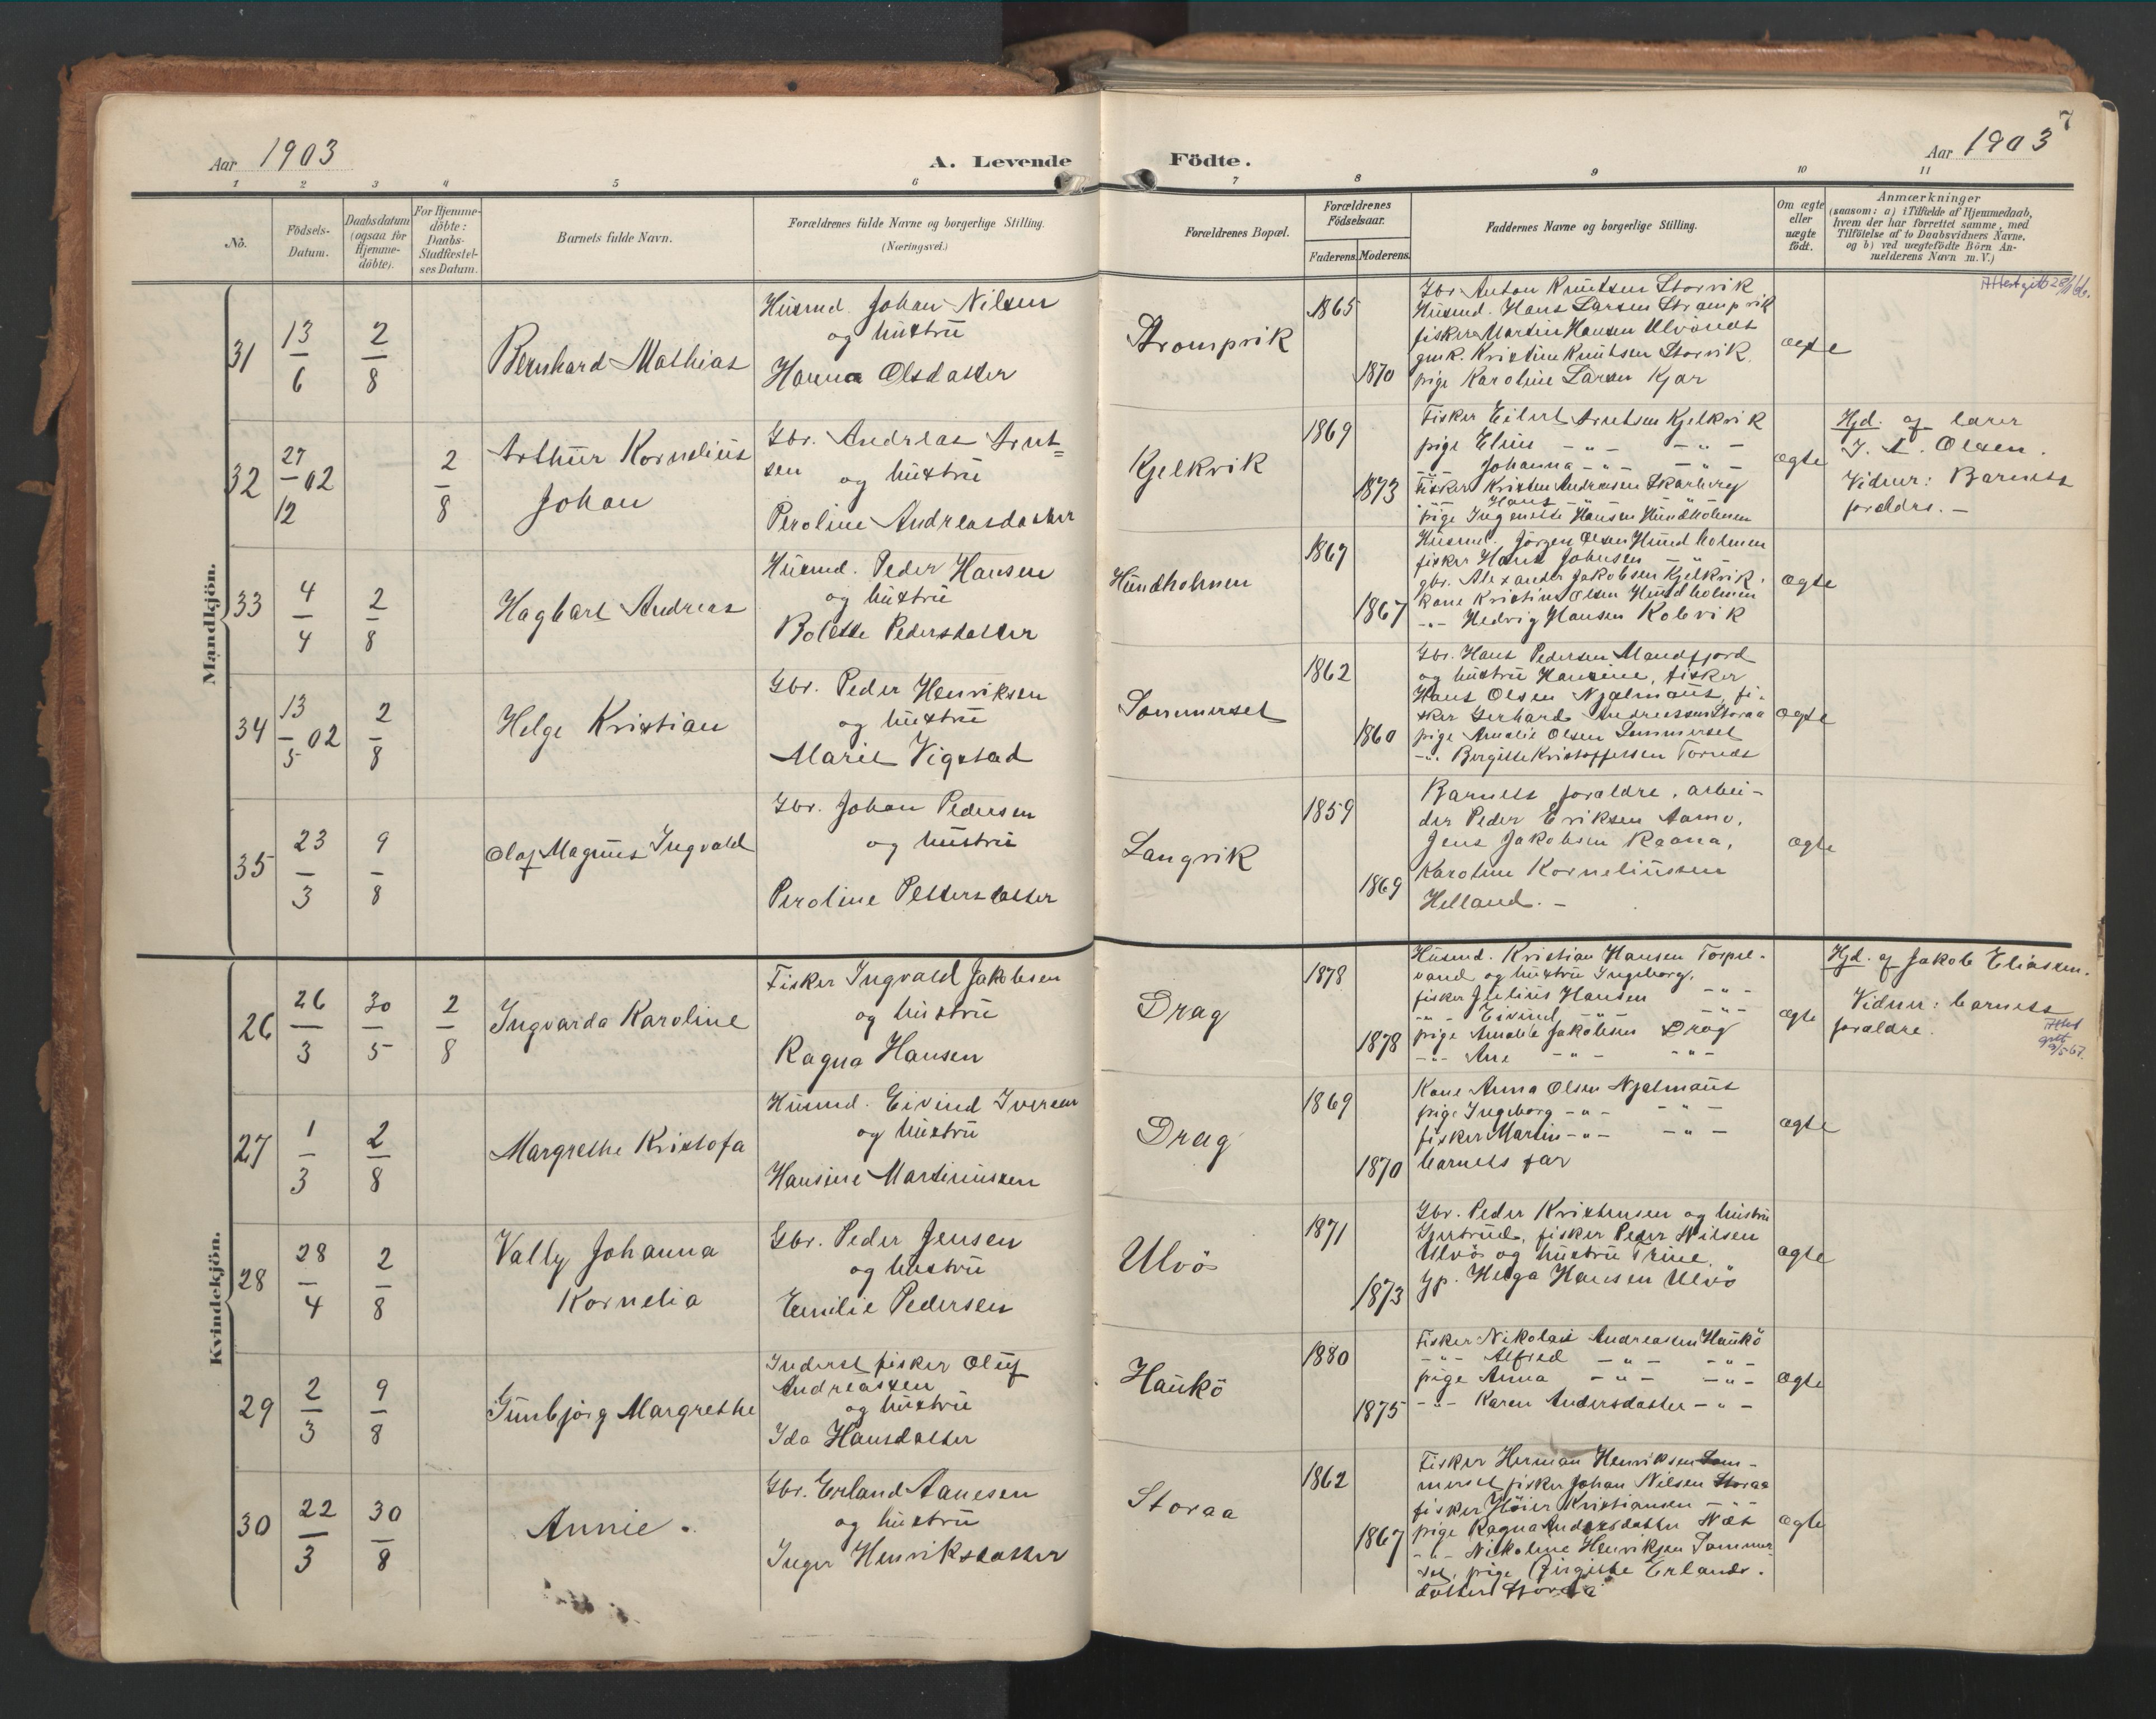 7
Aar 1903
A. Levende
Födte.
Aar 1903
1 2 3 4 5 6 7 8 9 10 11
Nö.
Födsels-
Datum.
Daabsdatum
(ogsaa for
Hjemme-
döbte).
For Hjemme-
döbte:
Daabs-
Stadfæstel-
ses Datum.
Barnets fulde Navn.
Forældrenes fulde Navne og borgerlige Stilling.
(Næringsvei.)
Forældrenes Bopæl.
Forældrenes
Födselsaar.
Faderens. Moderens.
Faddernes Navne og borgerlige Stilling.
Om ægte
eller
uægte
födt.
Anmærkninger
(saasom: a) i Tilfælde af Hjemmedaab,
hvem der har forrettet samme, med
Tilföielse af to Daabsvidners Navne,
og b) ved uægtefödte Börn An-
melderens Navn m. V.)
Mandkjön.
31
13/6
2/8
Bernhard Mathias
Husmd. Johan Nilsen
og hustru
Hanna Olsdatter
Strompvik
1865
1870
Gbr. Anton Knutsen Storvik
Husmd. Hans Larsen Strompvik
fisker Martin Hansen Ulvönæs
gmk. Kristine Knutsen Storvik.
pige Karoline Larsen Kjær
ægte
32
27/12 02
2/8
Arthur Kornelius
Johan
Gbr. Andreas Arnt=
sen og hustru
Peroline Andreasdatter
Kjelkvik
1869
1873
Fisker Eilert Arntsen Kjelkvik
pige Elin -"- -"-
-"- Johanna -"- -"-
Fisker Kristen Andreasen Skarberg
-"- Hans -"- -"-
pige Ingenette Hansen Hundholmen
ægte
Hjd. af lærer
J. A. Olsen.
Vidner: Barnets
forældre. -
33
4/4
2/8
Hagbart Andreas
Husmd. Peder Hansen
og hustru
Bolette Pedersdatter
Hundholmen
1867
1867
Husmd. Jörgen Olsen Hundholmen
fisker Hans Johnsen -"-
gbr. Alexander Jakobsen Kjelkvik.
kone Kristine Olsen Hundholmen
-"- Hedvig Hansen Kobvik
ægte
34
13/5 02
2/8
Helge Kristian
Gbr. Peder Henriksen
og hustru
Marie Vigstad
Sommerset
1862
1860
Gbr. Hans Pedersen Mandfjord
og hustru Hansine, fisker
Hans Olsen Njalmaus, fi-
sker Gerhard Andreassen Storaa
pige Amalie Olsen Sommerset
-"- Bergitte Kristoffersen Tornæs
ægte
35
23/3
9/8
Olaf Magnus Ingvald
Gbr. Johan Pedersen
og hustru
Peroline Pettersdatter
Langvik
1859
1869
Barnets forældre, arbei-
der Peder Eriksen Aamo,
Jens Jakobsen Raana,
Karoline Korneliussen
Helland. -
ægte
Kvindekjön.
26
26/3
30/5
2/8
Ingvarda Karoline
Fisker Ingvald Jakobsen
og hustru
Ragna Hansen
Drag
1878
1878
Husmd. Kristian Hansen Torpel-
vand og hustru Ingeborg.
fisker Julius Hansen -"-
-"- Eivind -"- -"-
pige Amalie Jakobsen Drag
-"- Ane -"- -"-
ægte
Hjd. af Jakob Eliassen.
Vidner: barnets
forældre.
27
1/3
2/8
Margrethe Kristofa
Husmd. Eivind Iversen
og hustru
Hansine Martinussen
Drag
1869
1870
Kone Anna Olsen Njalmaus
pige Ingeborg -"- -"-
fisker Martin -"- -"-
barnets far
ægte
28
28/4
2/8
Vally Johanna
Kornelia
Gbr. Peder Jensen
og hustru
Emilie Pedersen
Ulvö
1871
1873
Gbr. Peder Kristensen og hustru
Gjertrud, fisker Peder Nilsen
Ulvö og hustru Trine.
Gp. Helga Hansen Ulvö
ægte
29
2/3
9/8
Gunbjörg Margrethe
Inderst fisker Oluf
Andreassen
og hustru
Ida Hansdatter
Haukö
1880
1875
Fisker Nikolai Andreassen Haukö
-"- Alfred -"- -"-
pige Anna -"- -"-
-"- Karen Andersdatter -"-
ægte
30
22/3
30/8
Annie.
Gbr. Erland Aanesen
og hustru
Inger Henriksdatter
Storaa
1862
1867
Fisker Herman Henriksen Som-
merset fisker Johan Nilsen Storaa
fisker Höier Kristiansen -"-
pige Ragna Andersdatter Næs
-"- Nikoline Henriksen Sommer-
set, pige Birgitte Erlands-
datter Storaa
ægte